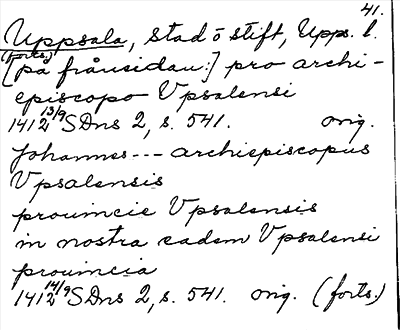 41.
Uppsala, stad o stift, Upps. l.
(forts.)
[på frånsidan:] pro archi-
episcopo Vpsalensi
1412 13/9 SDns 2, s. 541. orig.
Johannes --- archiepiscopus
Vpsalensis
prouincie Vpsalensis
in nostra eadem Vpsalensi
prouincia
1412 14/9 SDns 2, s. 541. orig. (forts.)